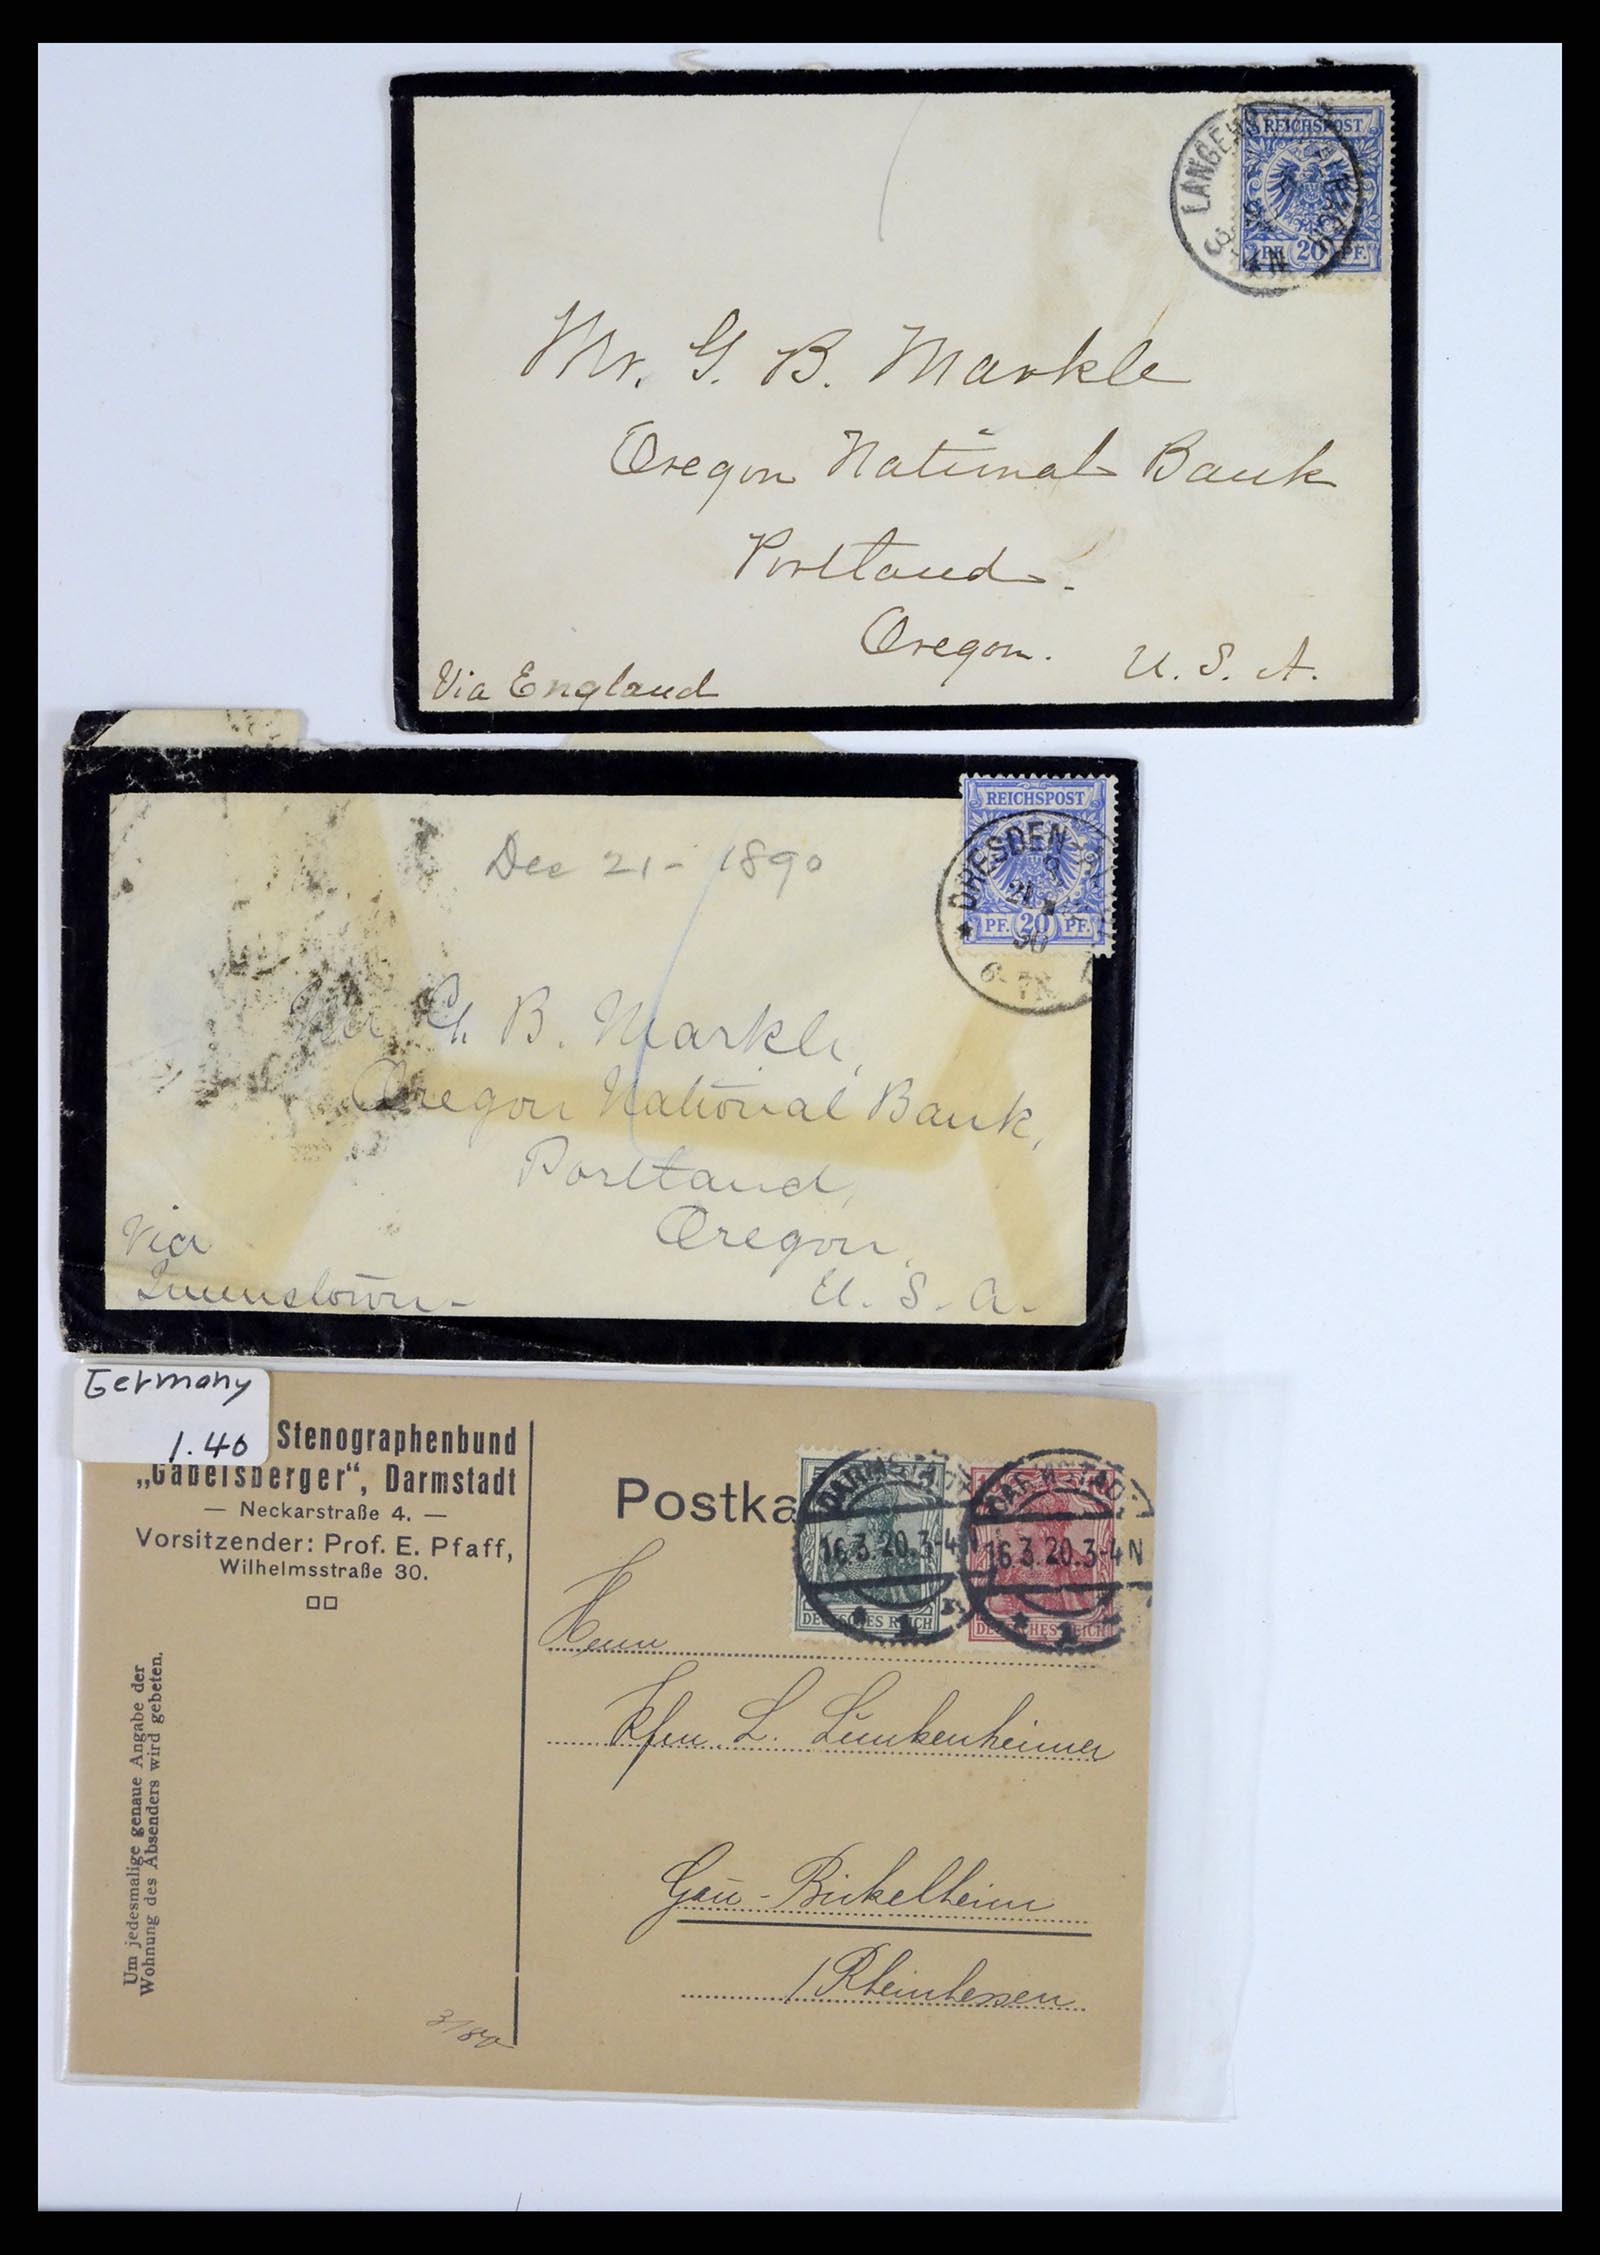 REICHSPOST
PF. 20 PF.
Mr. G. B. Markle
Oregon National Bank
Portland.
Oregon.
U. S. A.
Via England
REICHSPOST
DRESDEN
PF. 20 PF.
6-7N
Dec 21 - 1890
Mr G. B. Markle,
Oregon National Bank,
Portland,
Oregon,
U. S. A.
Via
Queenstown -
Germany
1.40
Stenographenbund
„Gabelsberger“, Darmstadt
— Neckarstraße 4. —
Vorsitzender: Prof. E. Pfaff,
Wilhelmsstraße 30.
Um jedesmalige genaue Angabe der
Wohnung des Absenders wird gebeten.
Postka
DARMSTADT
16.3.20.3-4N
DEUTSCHES REICH
DARMSTADT
16.3.20.3-4N
DEUTSCHES REICH
Herrn
Kfm. L. Lunkenheimer
Gau-Bickelheim
/Rheinhessen